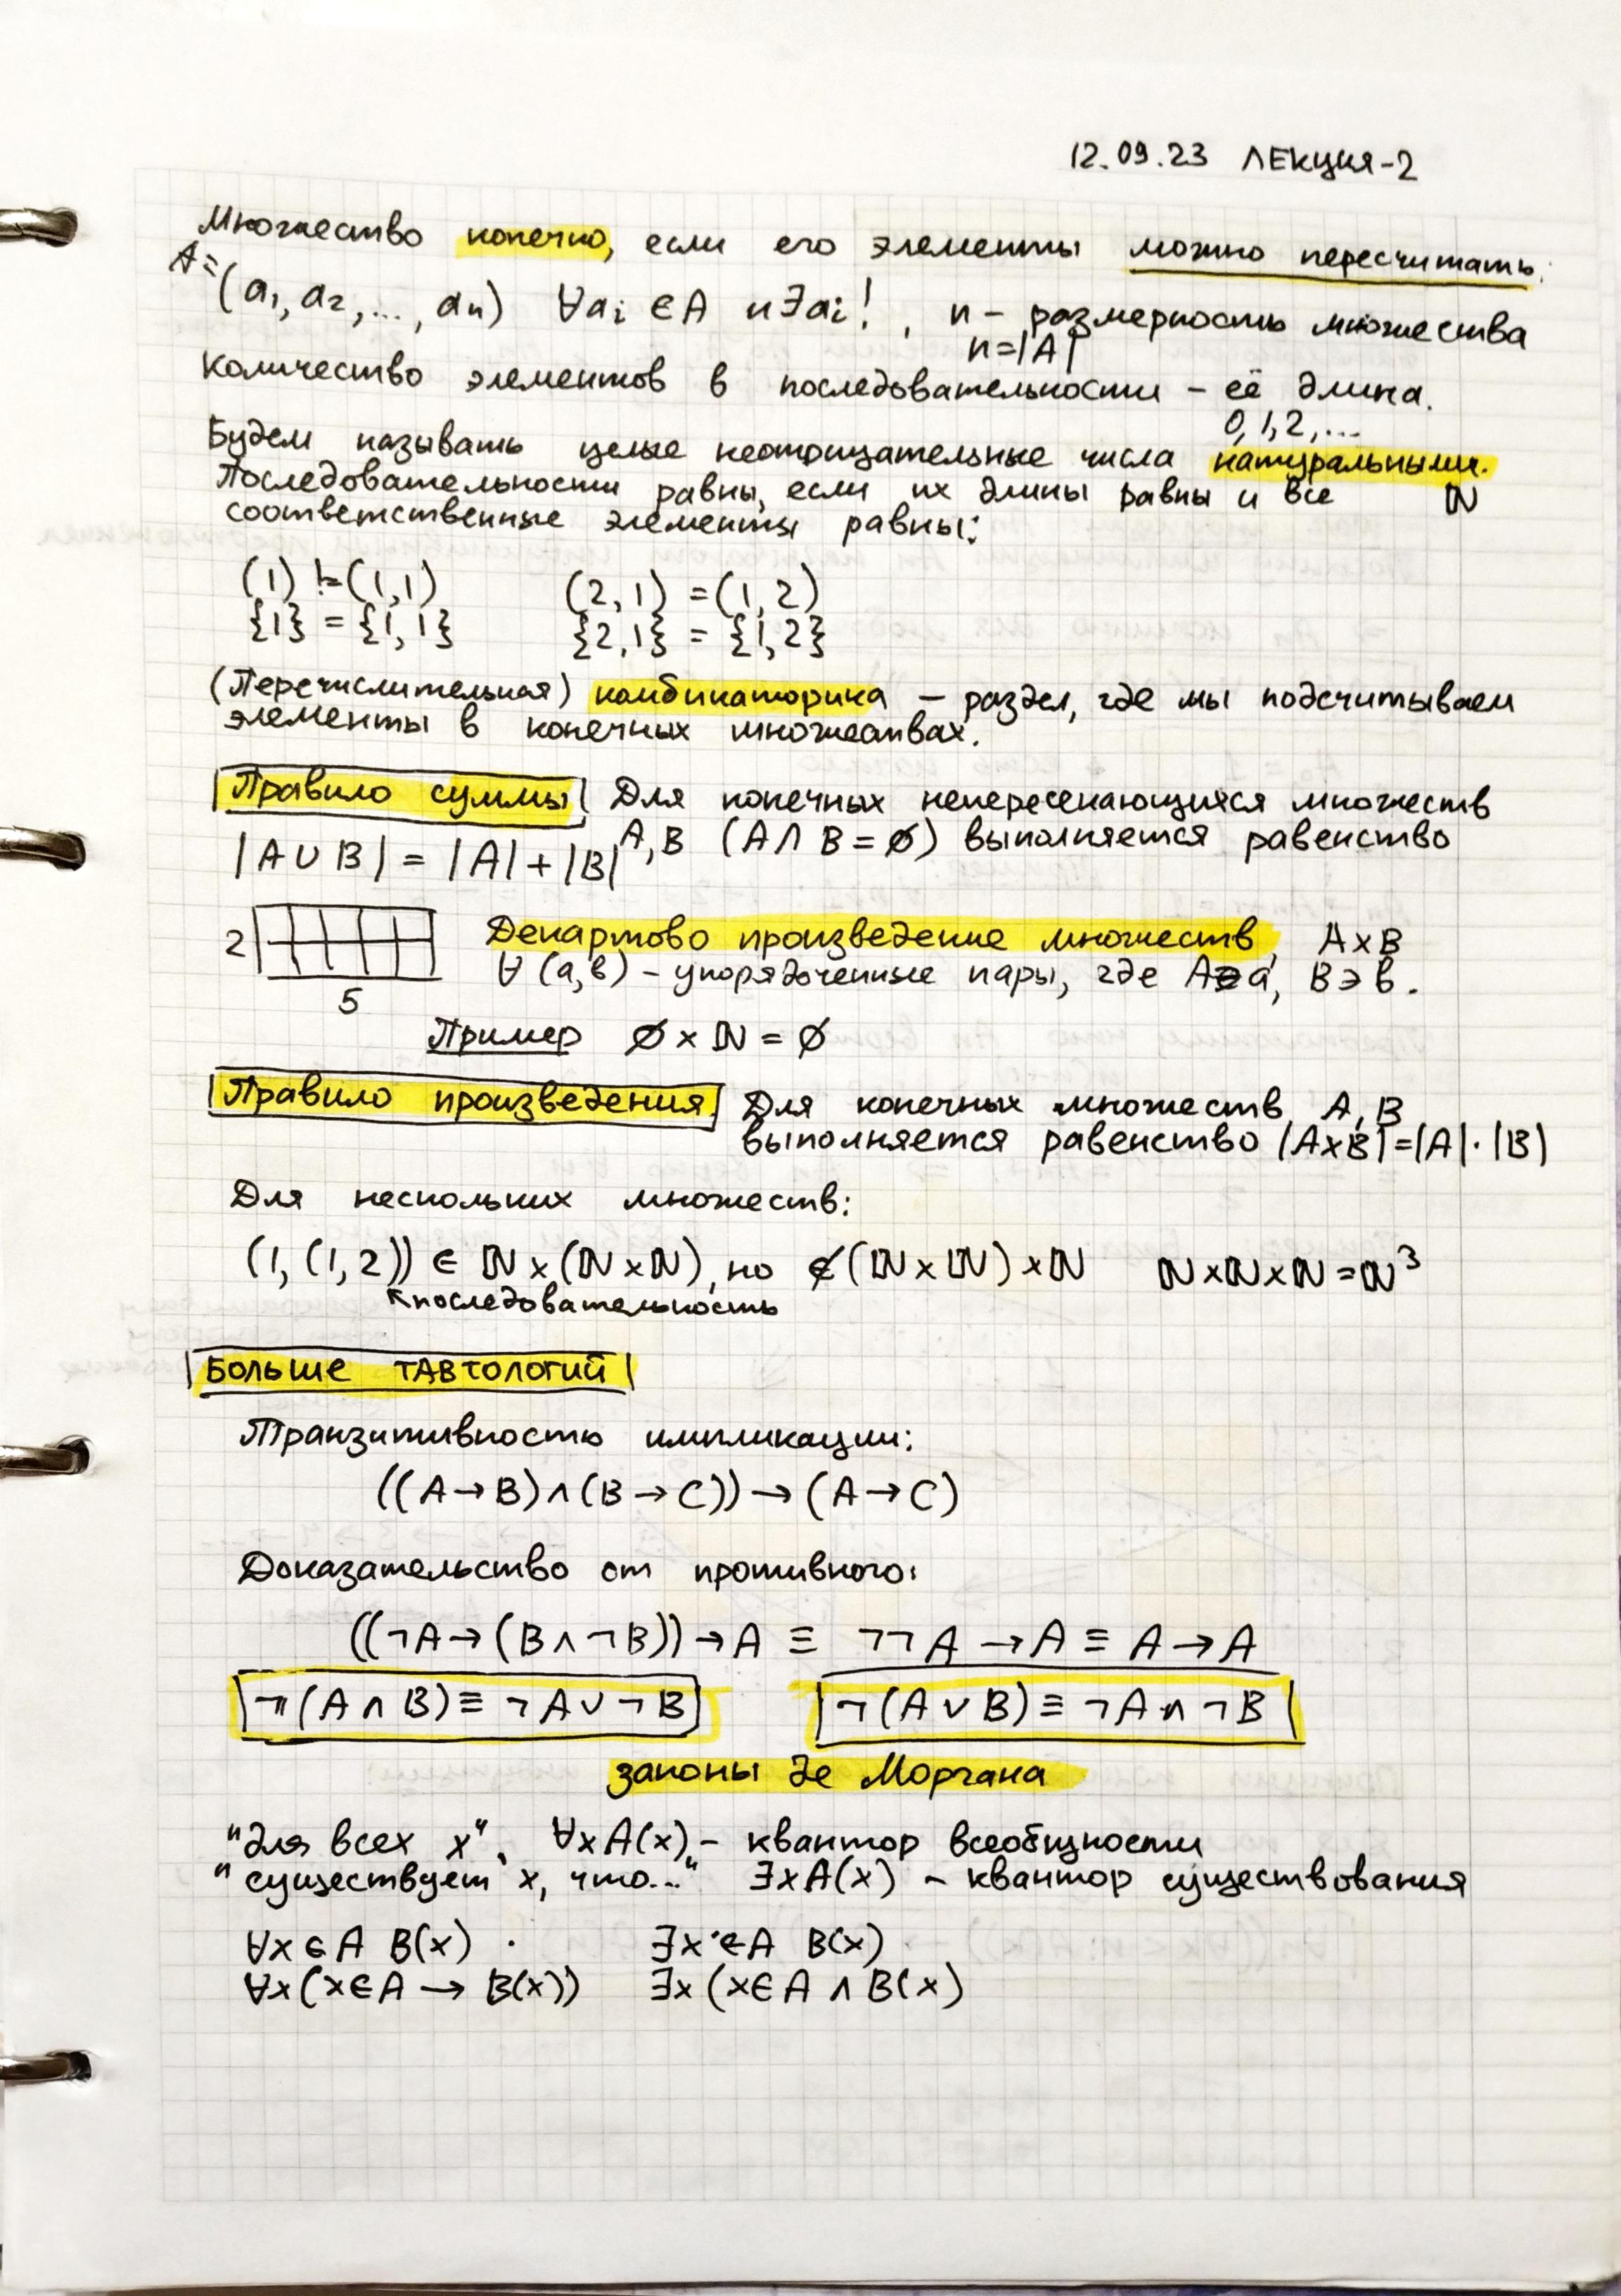 12.09.23 ЛЕКЦИЯ-2
Множество конечно, если его элементы можно пересчитать:
A=(a₁, a₂, ..., aₙ) ∀aᵢ ∈ A и ∃aᵢ!, n – размерность множества
n=|A|
Количество элементов в последовательности – её длина.
0, 1, 2, ...
Будем называть целые неотрицательные числа натуральными.
Последовательности равны, если их длины равны и все ℕ
соответственные элементы равны:
(1) != (1,1) (2,1) = (1,2)
{1} = {1,1} {2,1} = {1,2}
(Перечислительная) комбинаторика – раздел, где мы подсчитываем
элементы в конечных множествах.
Правило суммы Для конечных непересекающихся множеств
A, B (A ∩ B = ∅) выполняется равенство
|A ∪ B| = |A| + |B|
2 Декартово произведение множеств, A×B
∀ (a,b) – упорядоченные пары, где A∋a, B∋b.
5
Пример ∅ × ℕ = ∅
Правило произведения. Для конечных множеств A, B
выполняется равенство |A×B|=|A|·|B|
Для нескольких множеств:
(1, (1, 2)) ∈ ℕ × (ℕ × ℕ), но ∉ (ℕ × ℕ) × ℕ ℕ×ℕ×ℕ=ℕ³
↖последовательность
БОЛЬШЕ ТАВТОЛОГИЙ
Транзитивность импликации:
((A→B)∧(B→C))→(A→C)
Доказательство от противного:
((¬A→(B∧¬B))→A ≡ ¬¬A→A ≡ A→A
¬(A∧B)≡¬A∨¬B ¬(A∨B)≡¬A∧¬B
законы де Моргана
"для всех x", ∀xA(x) – квантор всеобщности
"существует x, что..." ∃xA(x) – квантор существования
∀x∈A B(x) ∃x∈A B(x)
∀x(x∈A → B(x)) ∃x(x∈A ∧ B(x)